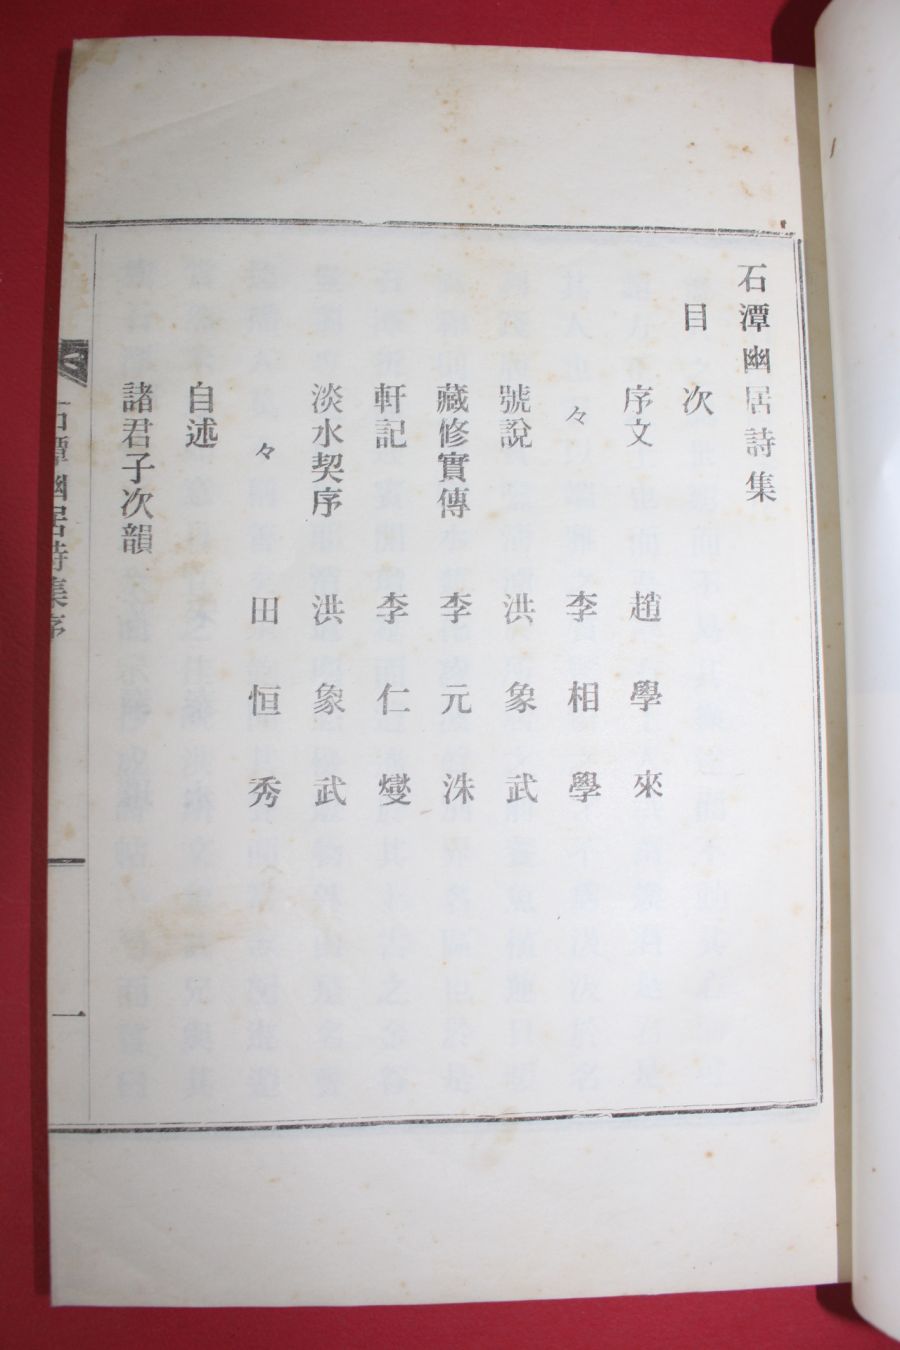 石潭幽居詩集
目次
序文 趙學來
々 李相學
號說 洪象武
藏修實傳 李元洙
軒記 李仁燮
淡水契序 洪象武
々 田恒秀
自述
諸君子次韻
石潭幽居詩集序
一